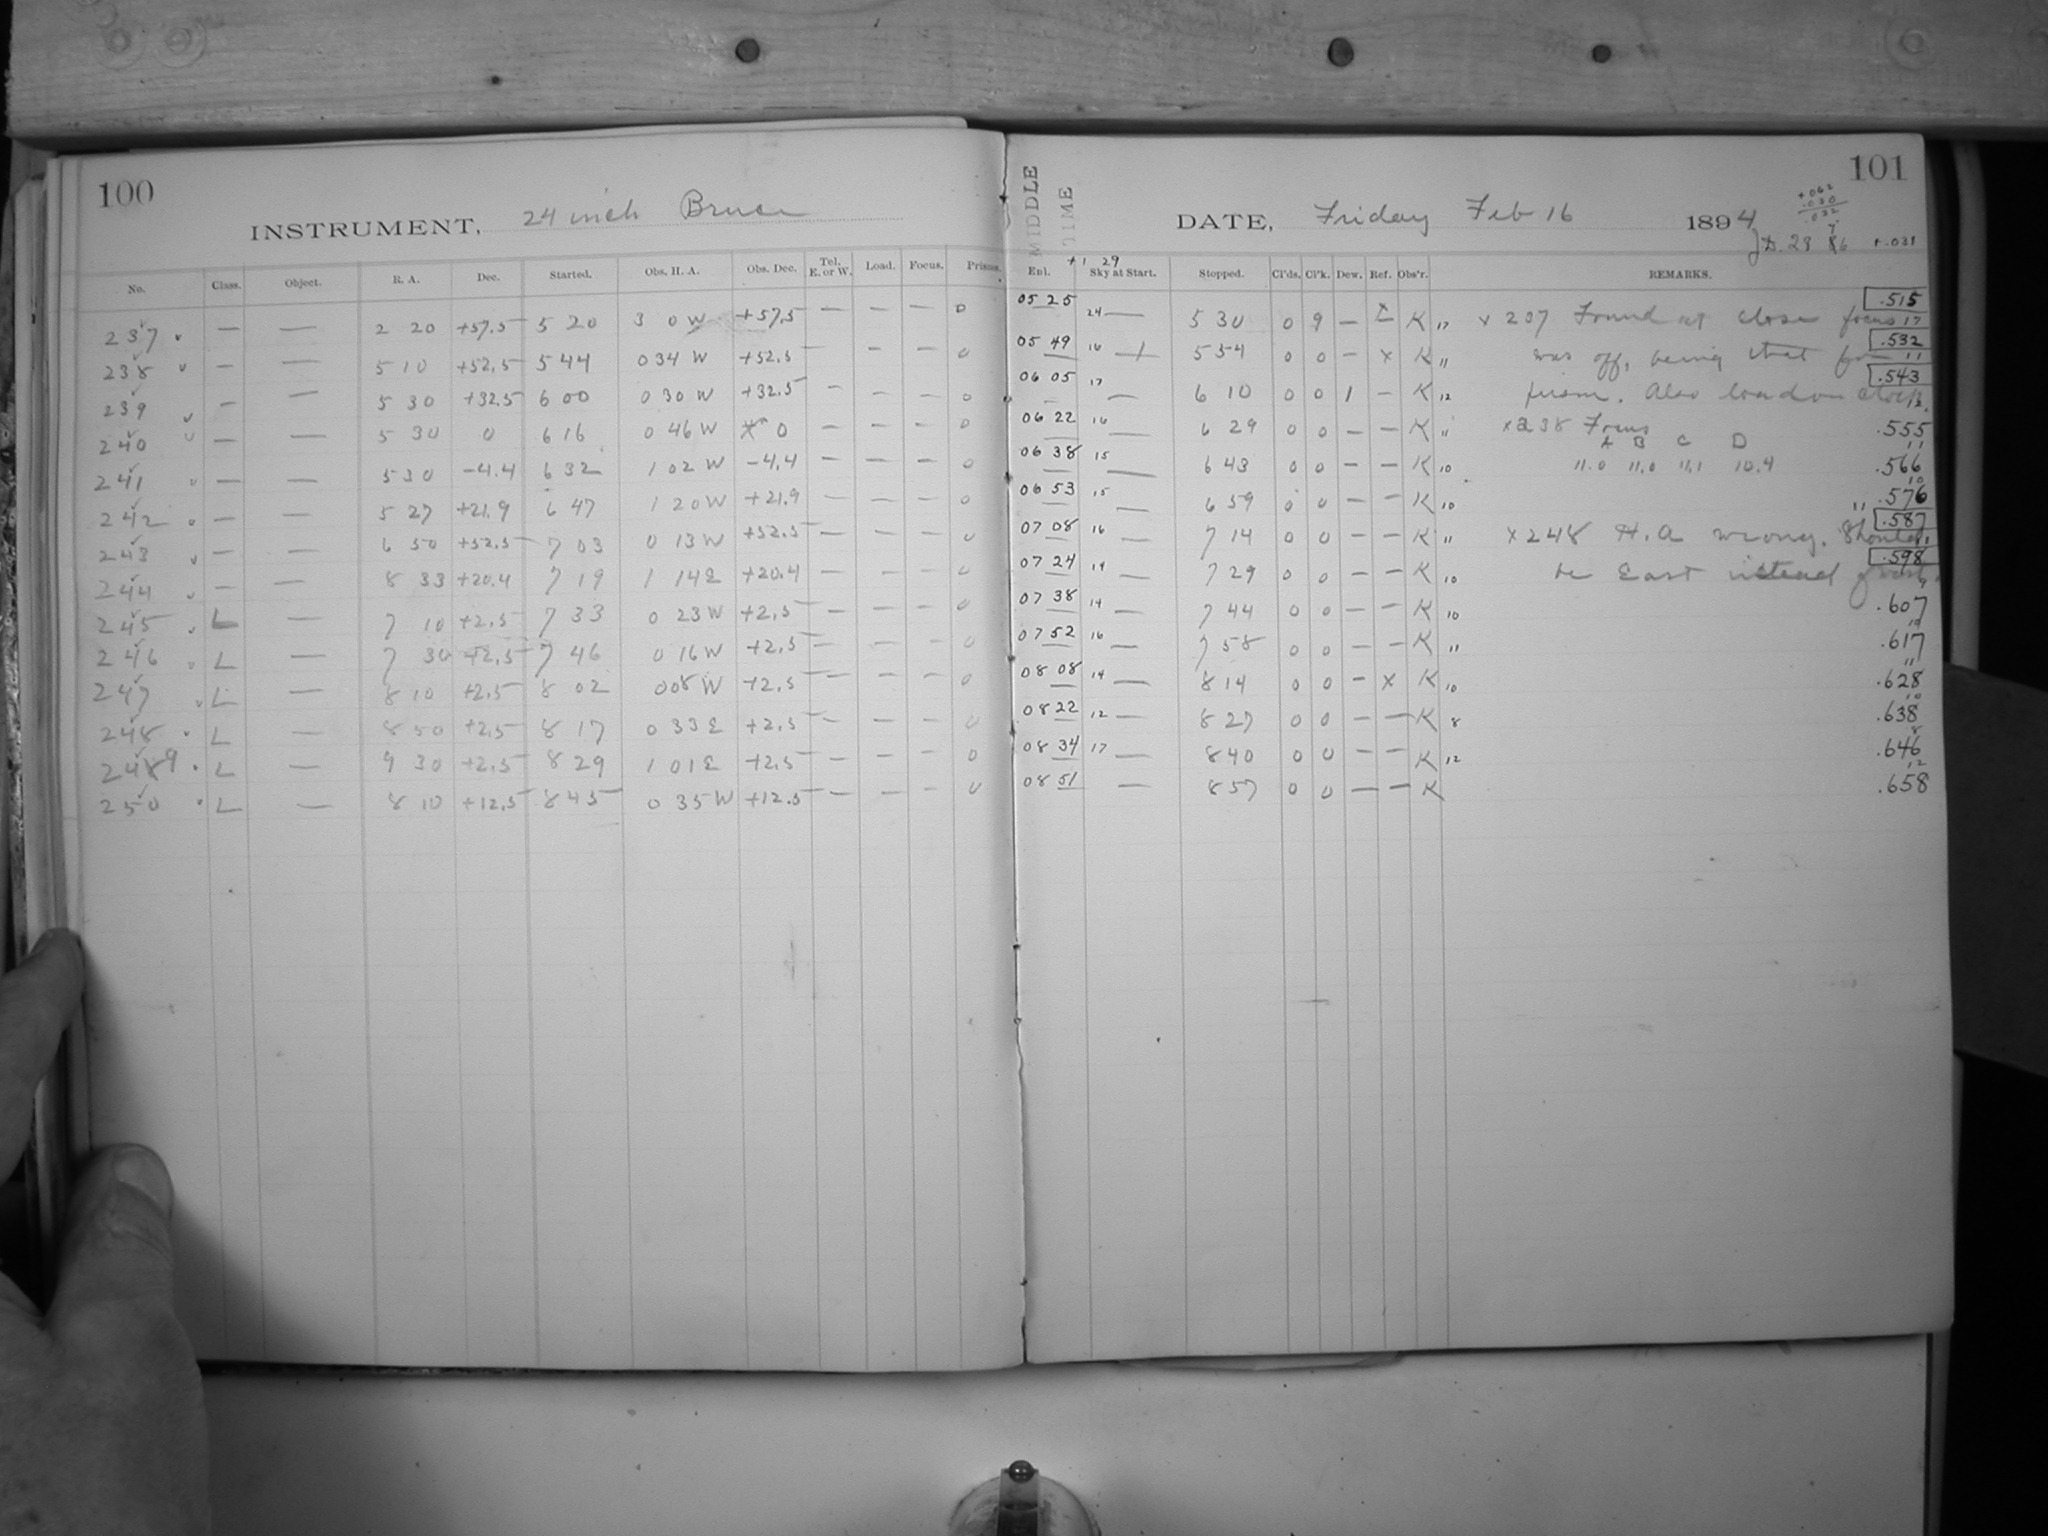 100
INSTRUMENT, 24 inch Bruce
No. Class. Object. R. A. Dec. Started. Obs. H. A. Obs. Dec. Tel. E. or W. Load. Focus. Prisms.
237 — — 2 20 +57.5 5 20 3 0 W +57.5 — — — 0
238 — — 5 10 +52.5 5 44 0 34 W +52.5 — — — 0
239 — — 5 30 +32.5 6 00 0 30 W +32.5 — — — 0
240 — — 5 30 0 6 16 0 46 W 0 — — — 0
241 — — 5 30 -4.4 6 32 1 02 W -4.4 — — — 0
242 — — 5 27 +21.9 6 47 1 20 W +21.9 — — — 0
243 — — 6 50 +52.5 7 03 0 13 W +52.5 — — — 0
244 — — 8 33 +20.4 7 19 1 14 E +20.4 — — — 0
245 L — 7 10 +2.5 7 33 0 23 W +2.5 — — — 0
246 L — 7 30 +2.5 7 46 0 16 W +2.5 — — — 0
247 L — 8 10 +2.5 8 02 0 08 W +2.5 — — — 0
248 L — 8 50 +2.5 8 17 0 33 E +2.5 — — — 0
249 L — 9 30 +2.5 8 29 1 01 E +2.5 — — — 0
250 L — 8 10 +12.5 8 45 0 35 W +12.5 — — — 0
101
MIDDLE TIME
DATE, Friday Feb 16 1894
+.062
.030
.032
J.D. 28 +.031
+1 29
Enl. Sky at Start. Stopped. Cl'ds. Cl'k. Dew. Ref. Obs'r. REMARKS.
05 25 24 — 5 30 0 9 — x K 17 x 237 Found at close focus .515 17
05 49 16 — 5 54 0 0 — x K 11 was off, being that for .532 11
06 05 17 — 6 10 0 0 1 — K 12 prism. Also load on clock. .543 12
06 22 16 — 6 29 0 0 — — K 11 x 238 Focus .555 11
A B C D
06 38 15 — 6 43 0 0 — — K 10 11.0 11.0 11.1 10.4 .566 10
06 53 15 — 6 59 0 0 — — K 10 .576 11
07 08 16 — 7 14 0 0 — — K 11 x 248 H.A wrong. Should .587 11
07 24 14 — 7 29 0 0 — — K 10 be East instead of west. .598 9
07 38 14 — 7 44 0 0 — — K 10 .607 10
07 52 16 — 7 58 0 0 — — K 11 .617 11
08 08 14 — 8 14 0 0 — x K 10 .628 10
08 22 12 — 8 27 0 0 — — K 8 .638 8
08 34 17 — 8 40 0 0 — — K 12 .646 12
08 51 — 8 57 0 0 — — K .658